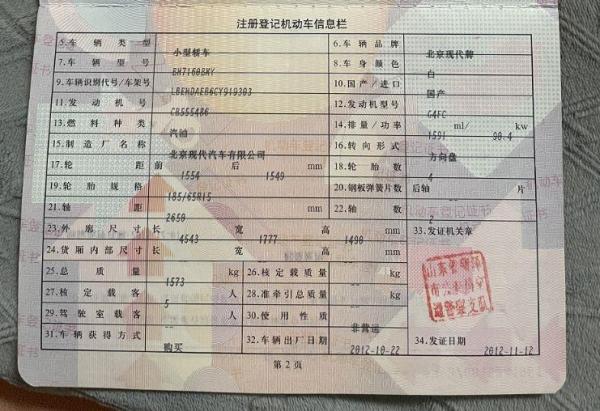 注册登记机动车信息栏
5.车辆类型 小型轿车 6.车辆品牌 北京现代牌
7.车辆型号 BH7160BMY 8.车身颜色 白
9.车辆识别代号/车架号 10.国产/进口 国产
11.发动机号 CB555486 12.发动机型号 G4FC
13.燃料种类 汽油 14.排量/功率 1591 ml/ 90.4 kw
15.制造厂名称 北京现代汽车有限公司 16.转向形式 方向盘
17.轮距 前 1554 后 1549 mm 18.轮胎数 4
19.轮胎规格 185/65R15 20.钢板弹簧片数 后轴 -- 片
21.轴距 2650 mm 22.轴数 2
23.外廓尺寸 长 4543 宽 1777 高 1490 mm 33.发证机关章
24.货厢内部尺寸 长 -- 宽 -- 高 -- mm
25.总质量 1573 kg 26.核定载质量 -- kg
27.核定载客 5 人 28.准牵引总质量 -- kg
29.驾驶室载客 -- 人 30.使用性质 非营运
31.车辆获得方式 购买 32.车辆出厂日期 2012-10-22 34.发证日期 2012-11-12
第2页